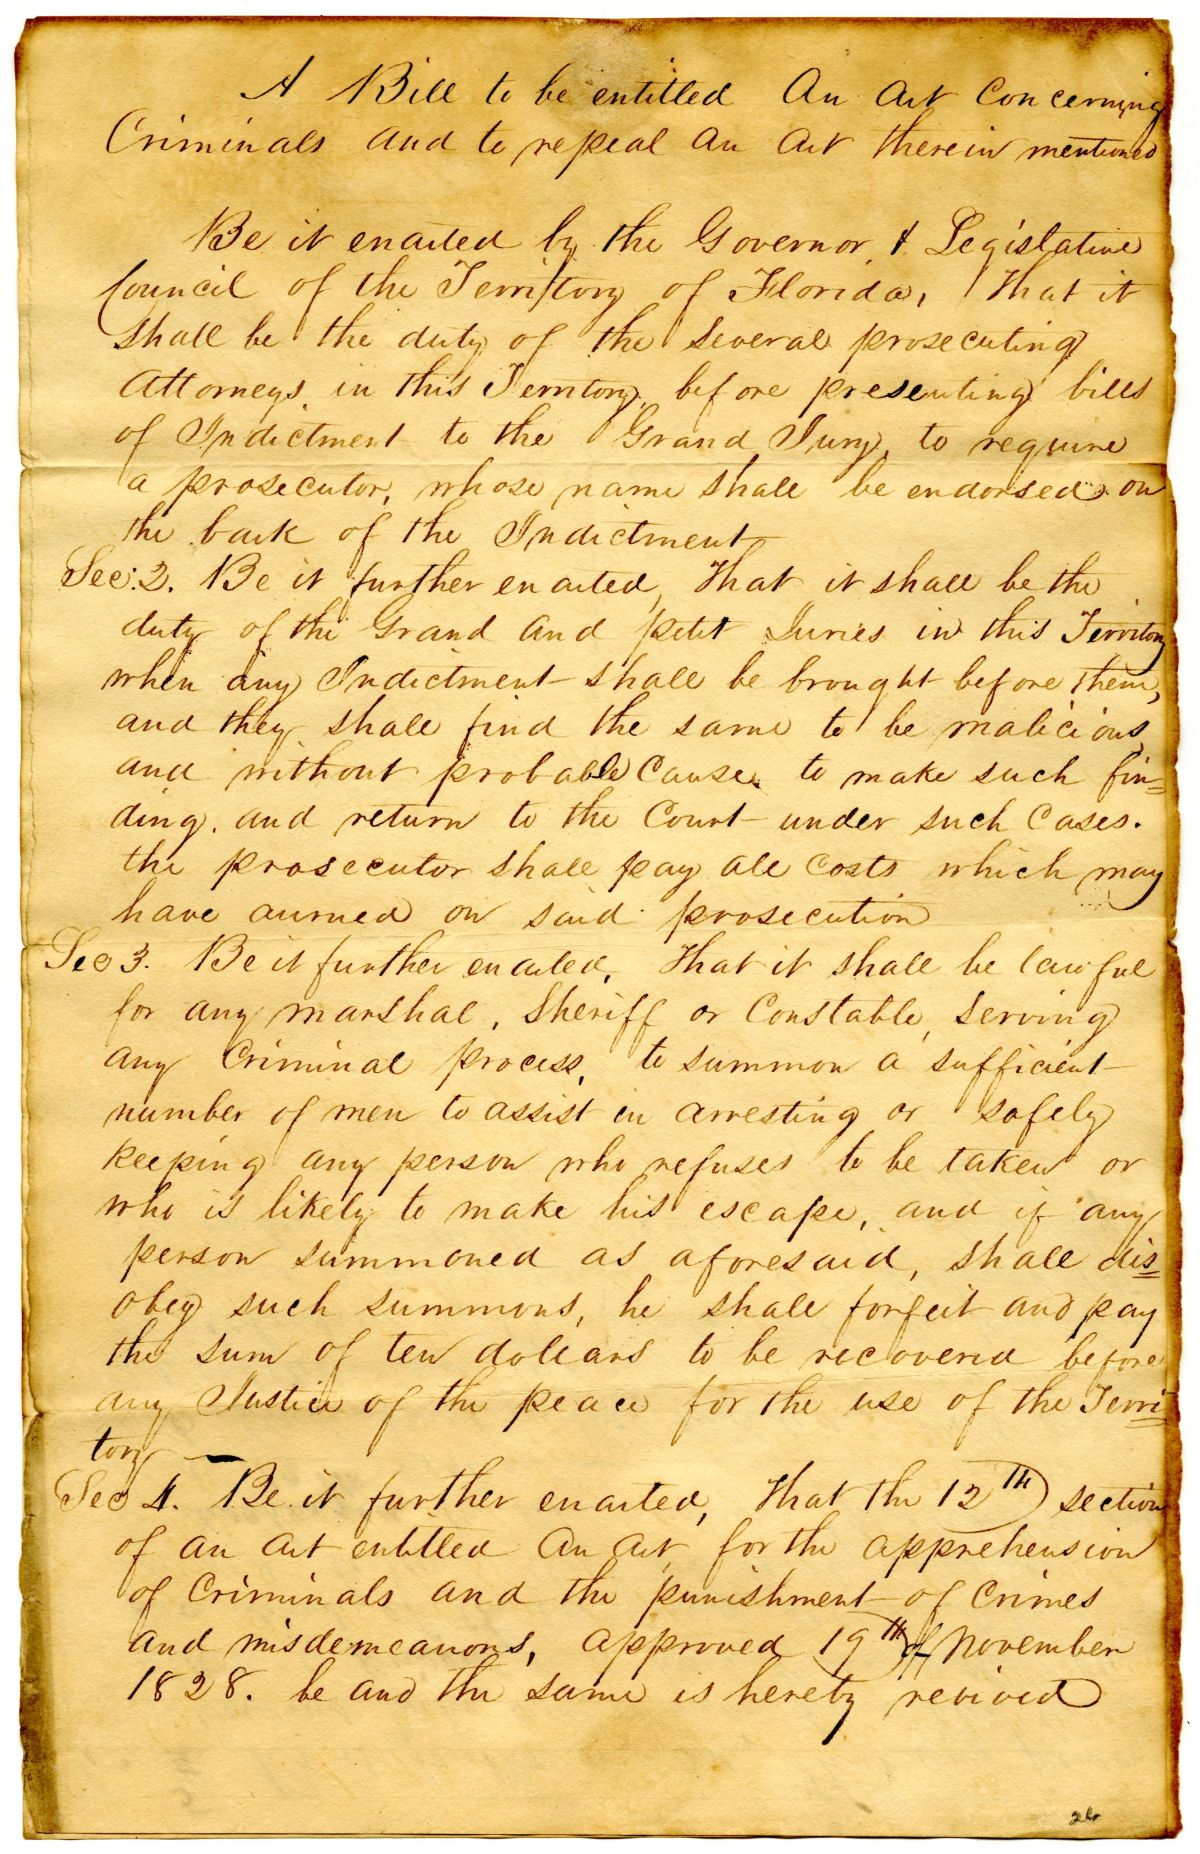 A Bill to be entitled An Act Concerning
Criminals and to repeal An Act therein mentioned
Be it enacted by the Governor & Legislative
Council of the Territory of Florida, That it
shall be the duty of the several prosecuting
Attorneys in this Territory, before presenting bills
of Indictment to the Grand Jury, to require
a prosecutor, whose name shall be endorsed on
the back of the Indictment
Sec: 2. Be it further enacted, That it shall be the
duty of the Grand and petit Juries in this Territory
when any Indictment shall be brought before them,
and they shall find the same to be malicious
and without probable Cause, to make such fin=
ding, and return to the Court under such Cases.
the prosecutor shall pay all Costs which may
have accrued on said prosecution
Sec 3. Be it further enacted, That it shall be lawful
for any marshal, Sheriff or Constable, serving
any Criminal process, to summon a sufficient
number of men to assist in arresting or safely
keeping any person who refuses to be taken or
who is likely to make his escape, and if any
person summoned as aforesaid, shall dis=
obey such summons, he shall forfeit and pay
the sum of ten dollars to be recovered before
any Justice of the peace for the use of the Terri=
tory —
Sec 4. Be it further enacted, That the 12th section
of an act entitled An Act, for the apprehension
of Criminals and the punishment of Crimes
and misdemeanors, approved 19th of November
1828. be and the same is hereby revived
26